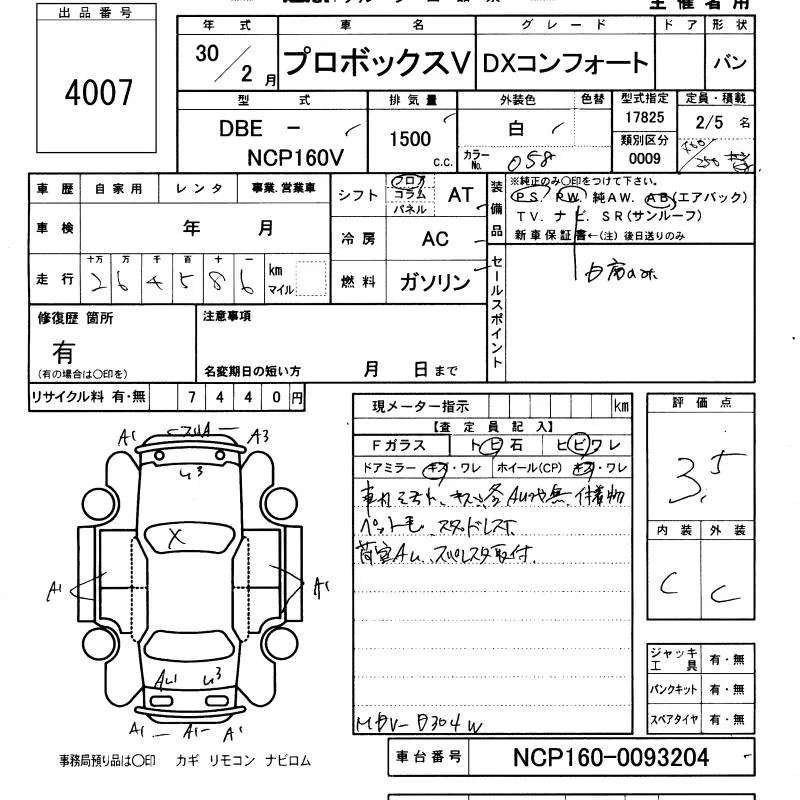 出品番号
4007
主催者用
年式 車名 グレード ドア 形状
30/2月 プロボックスV DXコンフォート バン
型式 排気量 外装色 色替 型式指定 定員・積載
DBE - 1500 c.c. 白 17825 2/5名
NCP160V カラーNo. 058 類別区分 0009
車歴 自家用 レンタ 事業.営業車
シフト フロア コラム パネル AT
装備品 ※純正のみ〇印をつけて下さい。
PS. PW. 純AW. AB(エアバック)
TV. ナビ. SR(サンルーフ)
新車保証書←(注)後日送りのみ
車検 年 月
冷房 AC
走行 十万 万 千 百 十 一
264586 km マイル
燃料 ガソリン
セールスポイント
修復歴 箇所
有
(有の場合は〇印を)
注意事項
名変期日の短い方 月 日まで
リサイクル料 有・無 7440円
現メーター指示 km
【査定員記入】
Fガラス トビ石 ヒビワレ
ドアミラー キズ・ワレ ホイール(CP) キズ・ワレ
評価点
3.5
内装 外装
C C
A1 A3
U3
X
A1 A1
U3
A1 A1 A1
ジャッキ工具 有・無
パンクキット 有・無
スペアタイヤ 有・無
事務局預り品は〇印 カギ リモコン ナビロム
車台番号 NCP160-0093204